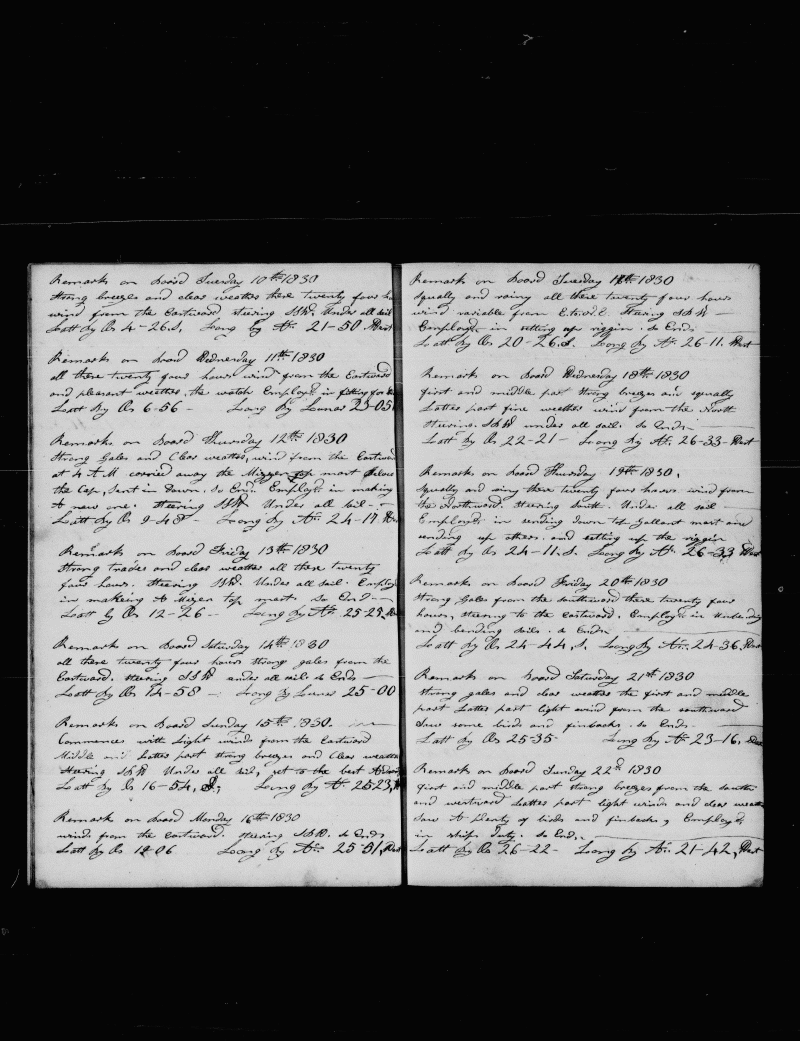 Remarks on Board Tuesday 10th 1830
Strong breezes and clear weather these twenty four
wind from the Eastward steering SSW. Under all sail
Latt by Ob 4-26.S, Long by Ar. 21-50 West
Remarks on Board Wednesday 11th 1830
all these twenty four hours wind from the Eastward
and pleasant weather, the watch Employd. in fitting
Latt By Ob 6-56 - Long By Lunar 23-05
Remarks on Board Thursday 12th 1830
Strong Gales and Clear weather, wind from the Eastward
at 4 A.M. carried away the Mizzen top mast below
the Cap, Sent in Down. So Ends. Employd. in making
A new one. Steering SSW. Under all sail -
Latt By Ob 9-48 - Long By Ar. 24-17
Remarks on Board Friday 13th 1830
Strong trades and clear weather all these twenty
four hours. Steering SSW. Under all sail. Employ
in makeing A Mizen top mast So End -
Latt by Ob 12-26 - Long By Ar. 25-25,
Remarks on Board Saturday 14th 1830
all these twenty four hours strong gales from the
Eastward. steering SSW under all sail. So Ends
Latt By Ob 14-58 - Long By Lunar 25-00
Remarks on Board Sunday 15th. 1830.
Commences with Light winds from the Eastward
Middle and Latter part strong breezes and Clear weather
Steering SSW Under all sail, yet to the best
Latt By Ob 16-54, S, Long By Ar. 25 23,
Remarks on Board Monday 16th 1830
wind from the Eastward. steering SSW. So Ends
Latt By Ob 19 06 Long By Ar. 25-51, West
Remarks on Board Tuesday 17th 1830
Squally and rainy all these twenty four hours
wind variable from E. to S.E. Steering SSW -
Employd in setting up riggin. So Ends
Latt By Ob 20-26.S. Long By Ar. 26-11. West
Remarks on Board Wednesday 18th 1830
first and middle part Strong breezes and squally
Latter part fine weather wind from the North
Steering. SSW under all sail. So Ends
Latt By Ob 22-21 - Long By Ar. 26-33 West
Remarks on Board Thursday 19th 1830.
Squally and rainy these twenty four hours wind from
the Northward. Steering South. Under all sail
Employd in sending down top Gallant mast and
sending up others. and setting up the riggin
Latt By Ob 24-11.S. Long By Ar. 26-33 West
Remarks on Board Friday 20th 1830
Strong Gales from the southward these twenty four
hours, steering to the Eastward. Employd in Unbending
and bending sails. So Ends
Latt By Ob 24-44,S, Long By Ar. 24-36, West
Remarks on Board Saturday 21st 1830
Strong gales and clear weather the first and middle
part Latter part light wind from the southward
Saw some birds and finbacks. So Ends
Latt By Ob 25-35- Long By Ar. 23-16,
Remarks on Board Sunday 22d 1830
first and middle part strong breezes from the south
and westward Latter part light winds and clear weather
Saw A plenty of birds and finbacks, Employd,
in ships Duty. So End,
Latt By Ob 26-22- Long By Ar. 21-42, West